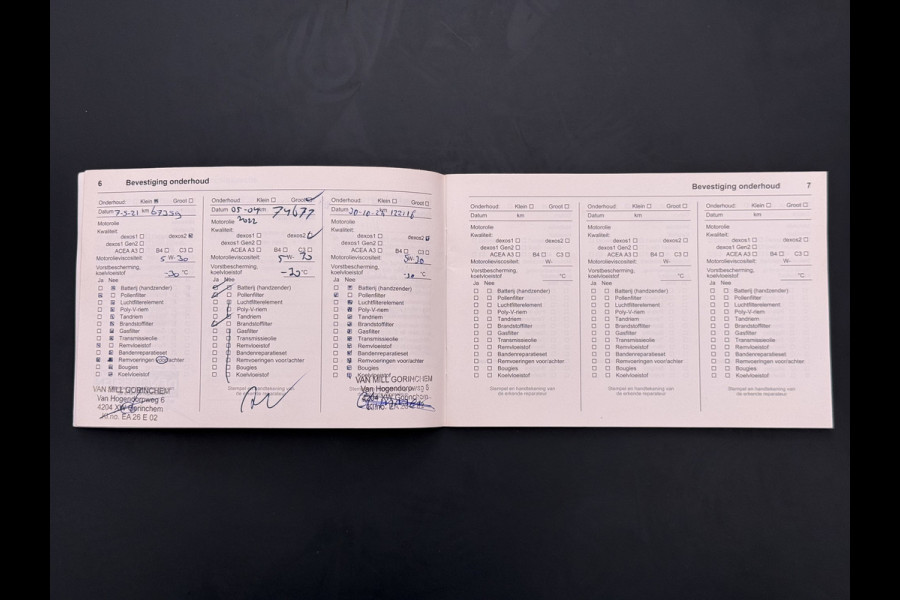 6 Bevestiging onderhoud
Onderhoud: Klein Groot
Datum 7-5-21 km 67259
Motorolie
Kwaliteit:
dexos1 dexos2
dexos1 Gen2
ACEA A3 B4 C3
Motorolieviscositeit: 5 W- 30
Vorstbescherming,
koelvloeistof -30 °C
Ja Nee
Batterij (handzender)
Pollenfilter
Luchtfilterelement
Poly-V-riem
Tandriem
Brandstoffilter
Gasfilter
Transmissieolie
Remvloeistof
Bandenreparatieset
Remvoeringen voor/achter
Bougies
Koelvloeistof
VAN MILL GORINCHEM
Van Hogendorpweg 6
4204 XW Gorinchem
Al.no. EA 26 E 02
Onderhoud: Klein Groot
Datum 05-04 km 74677
Motorolie 2022
Kwaliteit:
dexos1 dexos2
dexos1 Gen2
ACEA A3 B4 C3
Motorolieviscositeit: 5 W- 30
Vorstbescherming,
koelvloeistof °C
Ja Nee
Batterij (handzender)
Pollenfilter
Luchtfilterelement
Poly-V-riem
Tandriem
Brandstoffilter
Gasfilter
Transmissieolie
Remvloeistof
Bandenreparatieset
Remvoeringen voor/achter
Bougies
Koelvloeistof
Stempel en handtekening van
de erkende reparateur
Onderhoud: Klein Groot
Datum km
Motorolie
Kwaliteit:
dexos1 dexos2
dexos1 Gen2
ACEA A3 B4 C3
Motorolieviscositeit: 5W-30
Vorstbescherming,
koelvloeistof °C
Ja Nee
Batterij (handzender)
Pollenfilter
Luchtfilterelement
Poly-V-riem
Tandriem
Brandstoffilter
Gasfilter
Transmissieolie
Remvloeistof
Bandenreparatieset
Remvoeringen voor/achter
Bougies
Koelvloeistof
VAN MILL GORINCHEM
Van Hogendorpweg 6
Bevestiging onderhoud 7
Onderhoud: Klein Groot
Datum km
Motorolie
Kwaliteit:
dexos1 dexos2
dexos1 Gen2
ACEA A3 B4 C3
Motorolieviscositeit: W-
Vorstbescherming,
koelvloeistof °C
Ja Nee
Batterij (handzender)
Pollenfilter
Luchtfilterelement
Poly-V-riem
Tandriem
Brandstoffilter
Gasfilter
Transmissieolie
Remvloeistof
Bandenreparatieset
Remvoeringen voor/achter
Bougies
Koelvloeistof
Stempel en handtekening van
de erkende reparateur
Onderhoud: Klein Groot
Datum km
Motorolie
Kwaliteit:
dexos1 dexos2
dexos1 Gen2
ACEA A3 B4 C3
Motorolieviscositeit: W-
Vorstbescherming,
koelvloeistof °C
Ja Nee
Batterij (handzender)
Pollenfilter
Luchtfilterelement
Poly-V-riem
Tandriem
Brandstoffilter
Gasfilter
Transmissieolie
Remvloeistof
Bandenreparatieset
Remvoeringen voor/achter
Bougies
Koelvloeistof
Stempel en handtekening van
de erkende reparateur
Onderhoud: Klein Groot
Datum km
Motorolie
Kwaliteit:
dexos1 dexos2
dexos1 Gen2
ACEA A3 B4 C3
Motorolieviscositeit: W-
Vorstbescherming,
koelvloeistof °C
Ja Nee
Batterij (handzender)
Pollenfilter
Luchtfilterelement
Poly-V-riem
Tandriem
Brandstoffilter
Gasfilter
Transmissieolie
Remvloeistof
Bandenreparatieset
Remvoeringen voor/achter
Bougies
Koelvloeistof
Stempel en handtekening van
de erkende reparateur